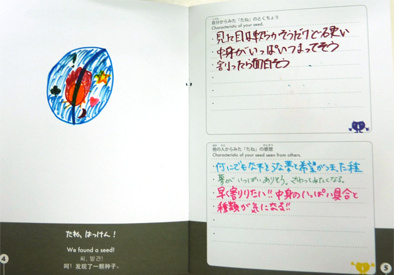 たね、はっけん！
We found a seed!
씨, 발견!
呵！发现了一颗种子。
4
自分からみた「たね」のとくちょう
Characteristic of your seed.
・見た目は軟らかそうだけど硬い
・中身がいっぱいつまってそう
・割ったら面白そう
他の人からみた「たね」の感想
Characteristic of your seed seen from others.
・何にでもなれそうな夢と希望がつまった種
・夢がいっぱいありそう。さわってみたくなる。
・早く割りたい!!中身のいっぱい具合と
種類が気になる!!
5